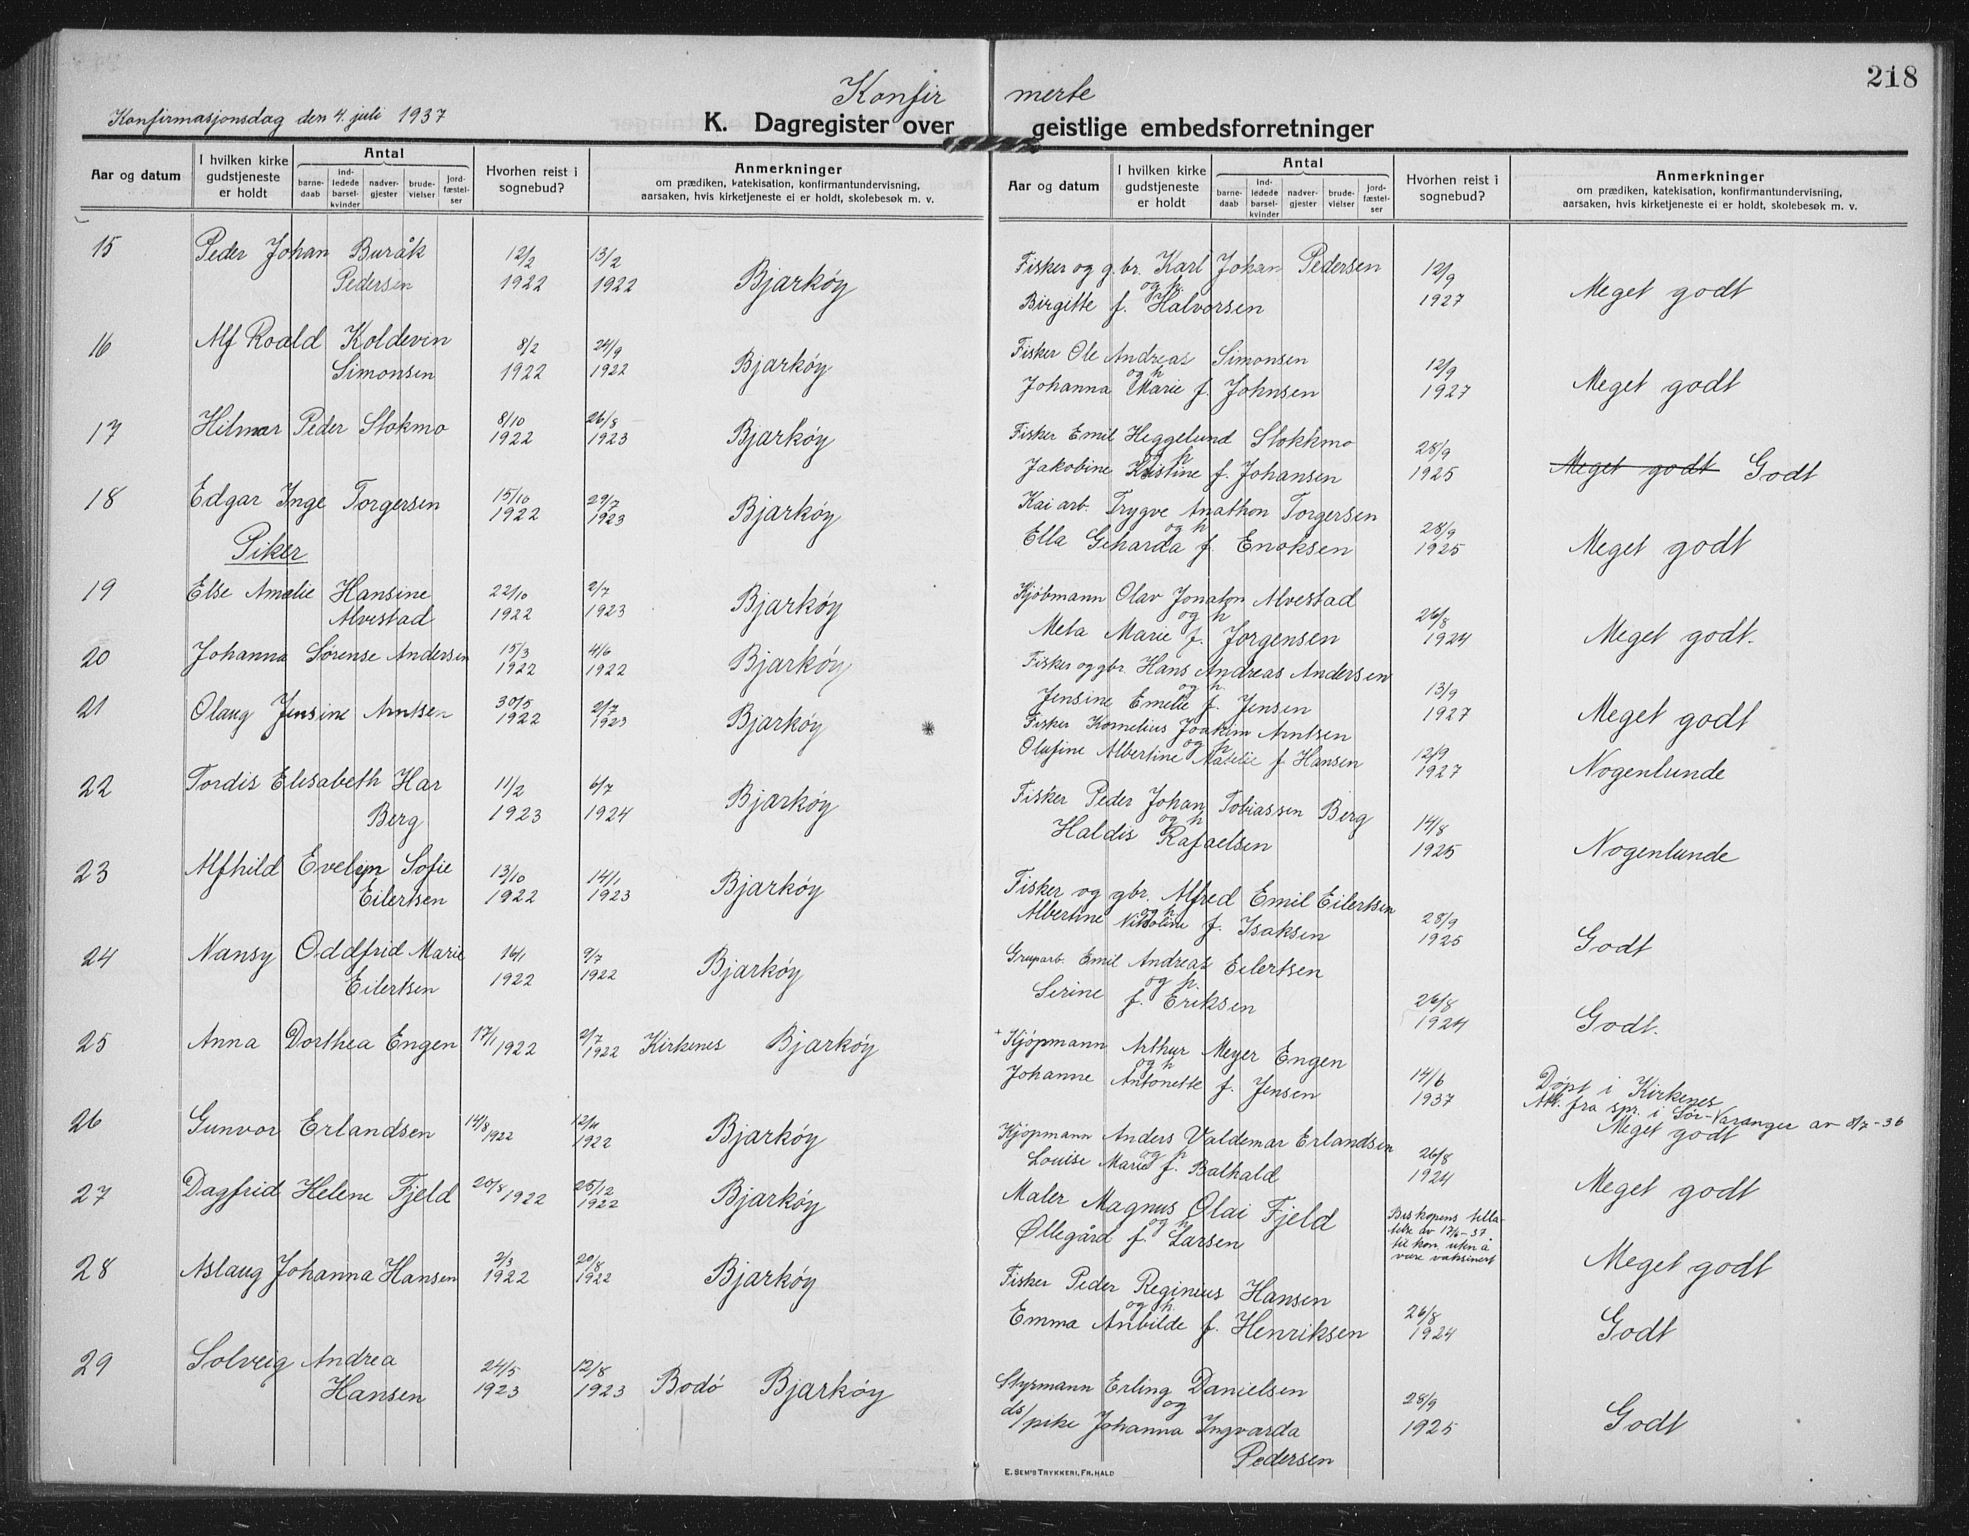 218
Konfir merte
Konfirmasjonsdag den 4. juli 1937
K. Dagregister over geistlige embedsforretninger
Aar og datum
I hvilken kirke gudstjeneste er holdt
Antal
barne-daab
ind-ledede barsel-kvinder
nadver-gjester
brude-vielser
jord-fæstel-ser
Hvorhen reist i sognebud?
Anmerkninger
om prædiken, katekisation, konfirmantundervisning,
aarsaken, hvis kirketjeneste ei er holdt, skolebesøk m. v.
Aar og datum
I hvilken kirke gudstjeneste er holdt
Antal
barne-daab
ind-ledede barsel-kvinder
nadver-gjester
brude-vielser
jord-fæstel-ser
Hvorhen reist i sognebud?
Anmerkninger
om prædiken, katekisation, konfirmantundervisning,
aarsaken, hvis kirketjeneste ei er holdt, skolebesøk m. v.
15 Peder Johan Buråk 12/2 13/2 Fisker og g.br. Karl Johan Pedersen 12/9
Pedersen 1922 1922 Bjarkøy og h. Birgitte f. Halvorsen 1927 Meget godt
16 Alf Roald Koldevin 8/2 24/9 Fisker Ole Andreas Simonsen 12/9
Simonsen 1922 1922 Bjarkøy og h Johanna Marie f. Johnsen 1927 Meget godt
17 Hilmar Peder Stokmo 8/10 1922 26/8 1923 Bjarkøy Fisker Emil Heggelund Stokkmo 28/9
og h Jakobine Kristine f. Johansen 1925 Meget godt Godt
18 Edgar Inge Torgersen 15/10 1922 29/7 1923 Bjarkøy Kai arb. Trygve Anathon Torgersen 28/9
og h Ella Geharda f. Enoksen 1925 Meget godt
Piker
19 Else Amalie Hansine 22/10 2/7 Kjøbmann Olav Jonaton Alvestad 26/8
Alvestad 1922 1923 Bjarkøy og h Meta Marie f. Jørgensen 1924 Meget godt.
20 Johanna Sørense Andersen 15/3 1922 4/6 1922 Bjarkøy Fisker og gbr. Hans Andreas Andersen 13/9
og h. Jensine Emelie f. Jensen 1927 Meget godt
21 Olaug Jensine Arntsen 30/5 1922 2/7 1923 Bjarkøy * Fisker Kornelius Joakim Arntsen 12/9
og h Olufine Albertine Natelie f Hansen 1927 Nogenlunde
22 Tordis Elisabeth Har 11/2 6/7 Fisker Peder Johan Tobiassen Berg 14/8
Berg 1923 1924 Bjarkøy og h Haldis Rafaelsen 1925 Nogenlunde
23 Alfhild Evelyn Sofie 13/10 14/1 Fisker og gbr. Alfred Emil Eilertsen 28/9
Eilertsen 1922 1923 Bjarkøy og h Albertine Nikoline f. Isaksen 1925 Godt
24 Nansy Oddfrid Marie 16/1 9/7 Gruparb. Emil Andreas Eilertsen 26/8
Eilertsen 1922 1922 Bjarkøy og h. Serine f. Eriksen 1924 Godt.
25 Anna Dorthea Engen 17/1 1922 2/7 1922 Kirkenes Bjarkøy + Kjøpmann Arthur Meyer Engen 14/6 Døpt i Kirkenes
og h Johanne Antonette f. Jensen 1937 Att. fra spr. i Sør-Varanger av 8/7-36
Meget godt
26 Gunvor Erlandsen 14/8 1922 1922 Bjarkøy Kjøpmann Anders Valdemar Erlandsen 26/8
og h Louise Marie f. Balhald 1924 Meget godt
27 Dagfrid Helene Fjeld 20/8 1922 25/12 1922 Bjarkøy Maler Magnus Olai Fjeld Biskopens tilla-
telse av 17/6-37
og h Øllegård f. Larsen til kon. uten å
være vaksinert Meget godt
28 Aslaug Johanna Hansen 2/3 1922 20/8 1922 Bjarkøy Fisker Peder Regineus Hansen 26/8
og h. Emma Anbilde f. Henriksen 1924 Godt
29 Solveig Andrea 24/5 12/8 Styrmann Erling Danielsen 28/9
Hansen 1923 1923 Bodø Bjarkøy og ds/pike Johanna Ingvarda 1925 Godt
Pedersen
E. SEM'S TRYKKERI, FR. HALD